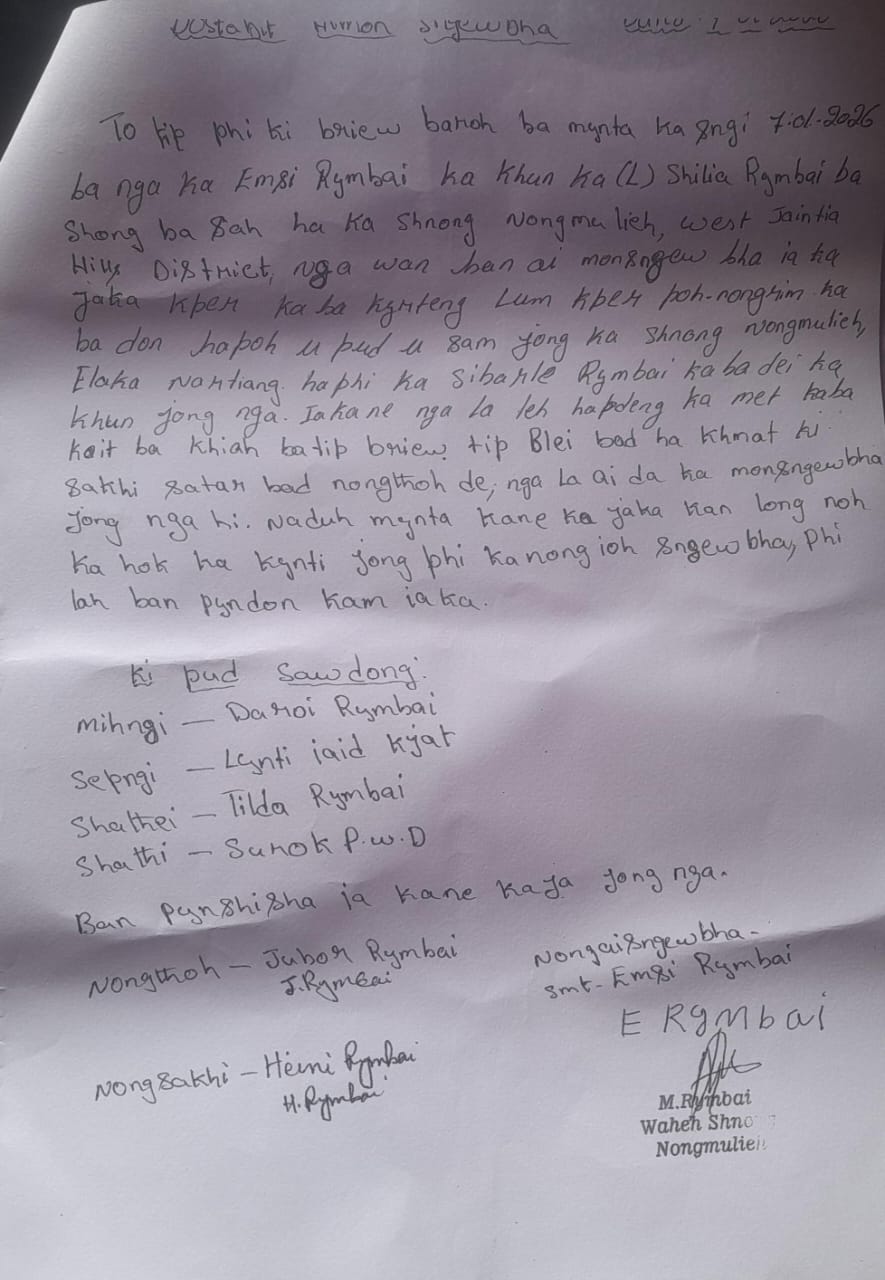 To tip phi ki briew baroh ba mynta ka sngi 7.01.2026
ba nga ka Emsi Rymbai ka khun ka (L) Shilia Rymbai ba
Shong ba sah ha ka Shnong Nongmulieh, West Jaintia
Hills District, nga wan ban ai monsngew bha ia ka
jaka kper ka ba kyrteng Lum kper poh-nongrim ka
ba don hapoh u pud u sam jong ka Shnong Nongmulieh,
Elaka Nartiang. ha phi ka Sibarle Rymbai ka ba dei ka
khun jong nga. Ia kane nga la leh hapdeng ka met kaba
koit ba khiah ba tip briew tip Blei bad ha khmat ki
sakhi satar bad nongthoh de, nga la ai da ka monsngewbha
jong nga hi. Naduh mynta kane ka jaka kan long noh
ka hok ha kynti jong phi ka nong ioh sngew bha, phi
lah ban pyndon kam ia ka.
Ki pud sawdong.
Mihngi – Daroi Rymbai
Sepngi – Lynti iaid kjat
Shathei – Tilda Rymbai
Shathi – Surok P.W.D
Ban pynshisha ia kane ka ja jong nga.
Nongthoh – Jubor Rymbai
J.Rymbai
Nongaisngewbha –
Smt. Emsi Rymbai
E Rymbai
Nongsakhi – Heini Rymbai
H. Rymbai
M.Rymbai
Waheh Shno
Nongmulieh